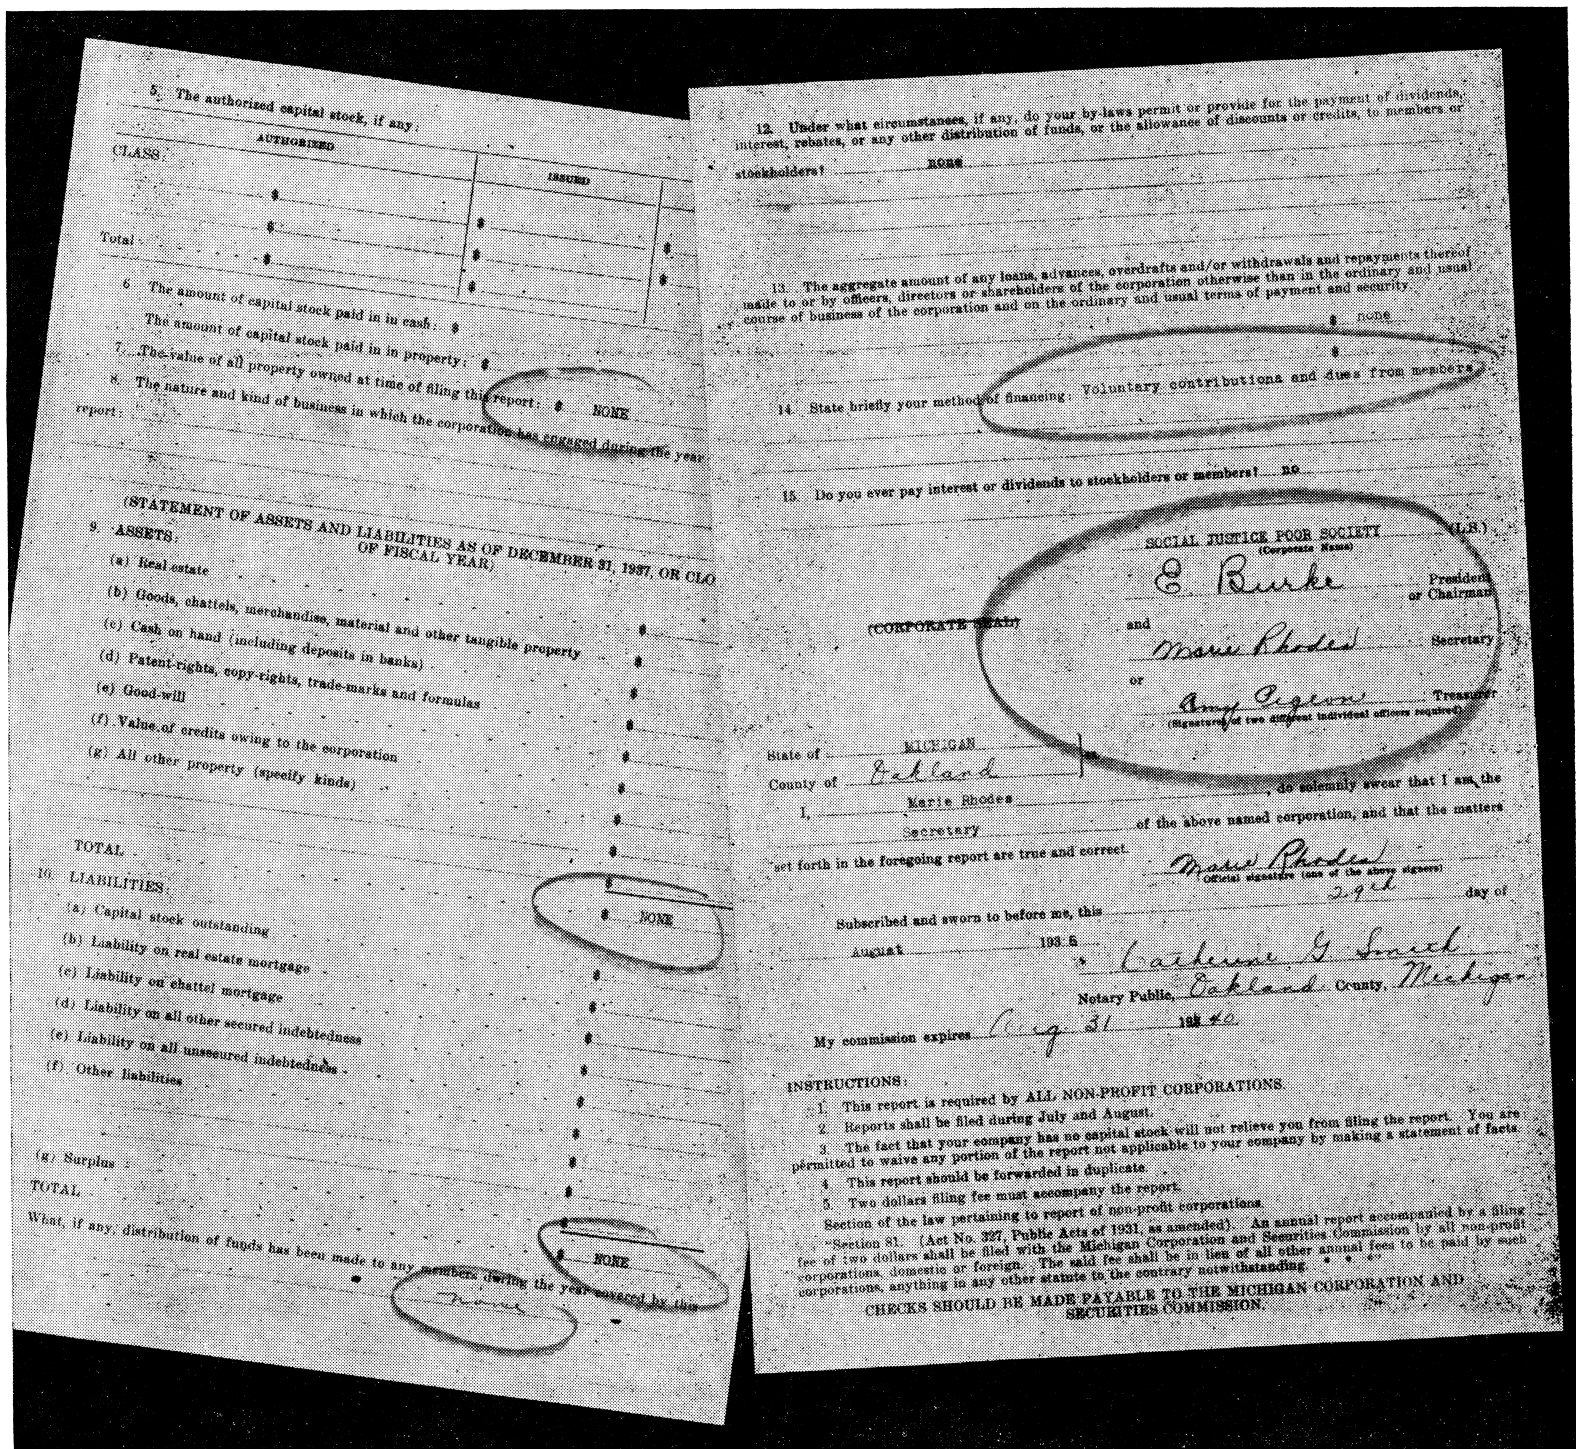 5. The authorized capital stock, if any:
AUTHORIZED
ISSUED
CLASS:
$
$ $
$
$ $
Total
$
$
6 The amount of capital stock paid in in cash: $
The amount of capital stock paid in in property: $
7. The value of all property owned at time of filing this report: $ NONE
8. The nature and kind of business in which the corporation has engaged during the year
report:
(STATEMENT OF ASSETS AND LIABILITIES AS OF DECEMBER 31, 1937, OR CLO
OF FISCAL YEAR)
9. ASSETS:
(a) Real estate $
(b) Goods, chattels, merchandise, material and other tangible property $
(c) Cash on hand (including deposits in banks) $
(d) Patent-rights, copy-rights, trade-marks and formulas $
(e) Good-will $
(f) Value of credits owing to the corporation $
(g) All other property (specify kinds) $
$
$
TOTAL $ NONE
10. LIABILITIES:
(a) Capital stock outstanding $
(b) Liability on real estate mortgage $
(c) Liability on chattel mortgage $
(d) Liability on all other secured indebtedness $
(e) Liability on all unsecured indebtedness $
(f) Other liabilities $
$
$
(g) Surplus $
TOTAL $ NONE
What, if any, distribution of funds has been made to any members during the year covered by this
none
12. Under what circumstances, if any, do your by-laws permit or provide for the payment of dividends,
interest, rebates, or any other distribution of funds, or the allowance of discounts or credits, to members or
stockholders? none
13. The aggregate amount of any loans, advances, overdrafts and/or withdrawals and repayments thereof
made to or by officers, directors or shareholders of the corporation otherwise than in the ordinary and usual
course of business of the corporation and on the ordinary and usual terms of payment and security.
$ none
$
14. State briefly your method of financing: Voluntary contributions and dues from members
15. Do you ever pay interest or dividends to stockholders or members? no
SOCIAL JUSTICE POOR SOCIETY (L.S.)
(Corporate Name)
E Burke President
or Chairman
(CORPORATE SEAL)
and
Marie Rhodes Secretary
or
Amy Pigeon Treasurer
(Signatures of two different individual officers required)
State of MICHIGAN
County of Oakland } ss
I, Marie Rhodes, do solemnly swear that I am the
Secretary of the above named corporation, and that the matters
set forth in the foregoing report are true and correct.
Marie Rhodes
Official signature (one of the above signers)
Subscribed and sworn to before me, this 29th day of
August 1938
Catherine G Smith
Notary Public, Oakland County, Michigan
My commission expires Aug. 31 1940
INSTRUCTIONS:
1. This report is required by ALL NON-PROFIT CORPORATIONS.
2. Reports shall be filed during July and August.
3. The fact that your company has no capital stock will not relieve you from filing the report. You are
permitted to waive any portion of the report not applicable to your company by making a statement of facts.
4 This report should be forwarded in duplicate.
5. Two dollars filing fee must accompany the report.
Section of the law pertaining to report of non-profit corporations.
"Section 81. (Act No. 327, Public Acts of 1931, as amended). An annual report accompanied by a filing
fee of two dollars shall be filed with the Michigan Corporation and Securities Commission by all non-profit
corporations, domestic or foreign. The said fee shall be in lieu of all other annual fees to be paid by such
corporations, anything in any other statute to the contrary notwithstanding. * * *"
CHECKS SHOULD BE MADE PAYABLE TO THE MICHIGAN CORPORATION AND
SECURITIES COMMISSION.